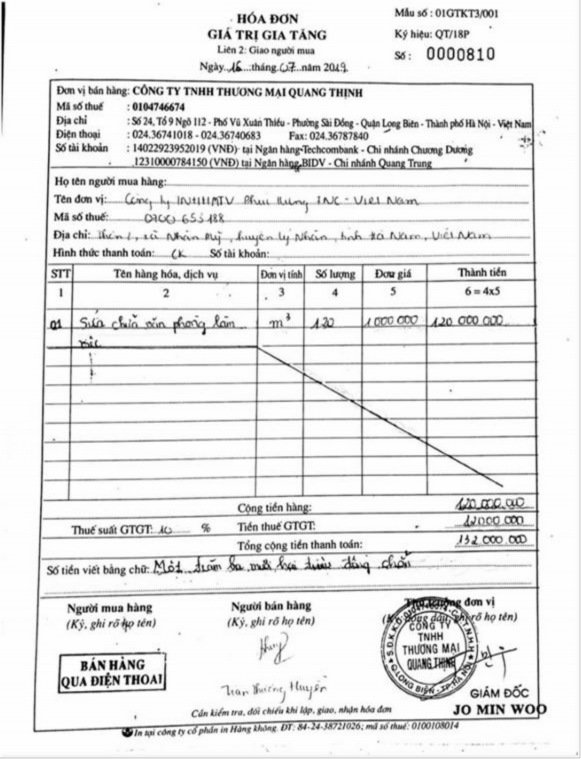 HÓA ĐƠN
GIÁ TRỊ GIA TĂNG
Liên 2: Giao người mua
Ngày 16 tháng 07 năm 2019
Mẫu số : 01GTKT3/001
Ký hiệu: QT/18P
Số: 0000810
Đơn vị bán hàng: CÔNG TY TNHH THƯƠNG MẠI QUANG THỊNH
Mã số thuế : 0104746674
Địa chỉ : Số 24, Tổ 9 Ngõ 112 - Phố Vũ Xuân Thiều - Phường Sài Đồng - Quận Long Biên - Thành phố Hà Nội - Việt Nam
Điện thoại : 024.36741018 - 024.36740683 Fax: 024.36787840
Số tài khoản : 14022923952019 (VNĐ) tại Ngân hàng Techcombank - Chi nhánh Chương Dương
12310000784150 (VNĐ) tại Ngân hàng BIDV - Chi nhánh Quang Trung
Họ tên người mua hàng:
Tên đơn vị: Công ty TNHH MTV Phuc Hung INC - Việt Nam
Mã số thuế: 0700 655 188
Địa chỉ: Thôn 1, xã Nhân Mỹ, huyện Lý Nhân, tỉnh Hà Nam, Việt Nam
Hình thức thanh toán: CK Số tài khoản:
STT Tên hàng hóa, dịch vụ Đơn vị tính Số lượng Đơn giá Thành tiền
1 2 3 4 5 6 = 4x5
01 Sửa chữa văn phòng làm m³ 120 1 000 000 120 000 000
việc
Cộng tiền hàng: 120.000.000
Thuế suất GTGT: 10 % Tiền thuế GTGT: 12 000.000
Tổng cộng tiền thanh toán: 132 000.000
Số tiền viết bằng chữ: Một trăm ba mươi hai triệu đồng chẵn
Người mua hàng
(Ký, ghi rõ họ tên)
Người bán hàng
(Ký, ghi rõ họ tên)
Thủ trưởng đơn vị
(Ký, đóng dấu, ghi rõ họ tên)
BÁN HÀNG
QUA ĐIỆN THOẠI
CÔNG TY
TNHH
THƯƠNG MẠI
QUANG THỊNH
Q.LONG BIÊN - TP.HÀ NỘI
Trần Thương Huyền
GIÁM ĐỐC
JO MIN WOO
Cần kiểm tra, đối chiếu khi lập, giao, nhận hóa đơn
In tại công ty cổ phần in Hàng không. ĐT: 84-24-38721026; mã số thuế: 0100108014